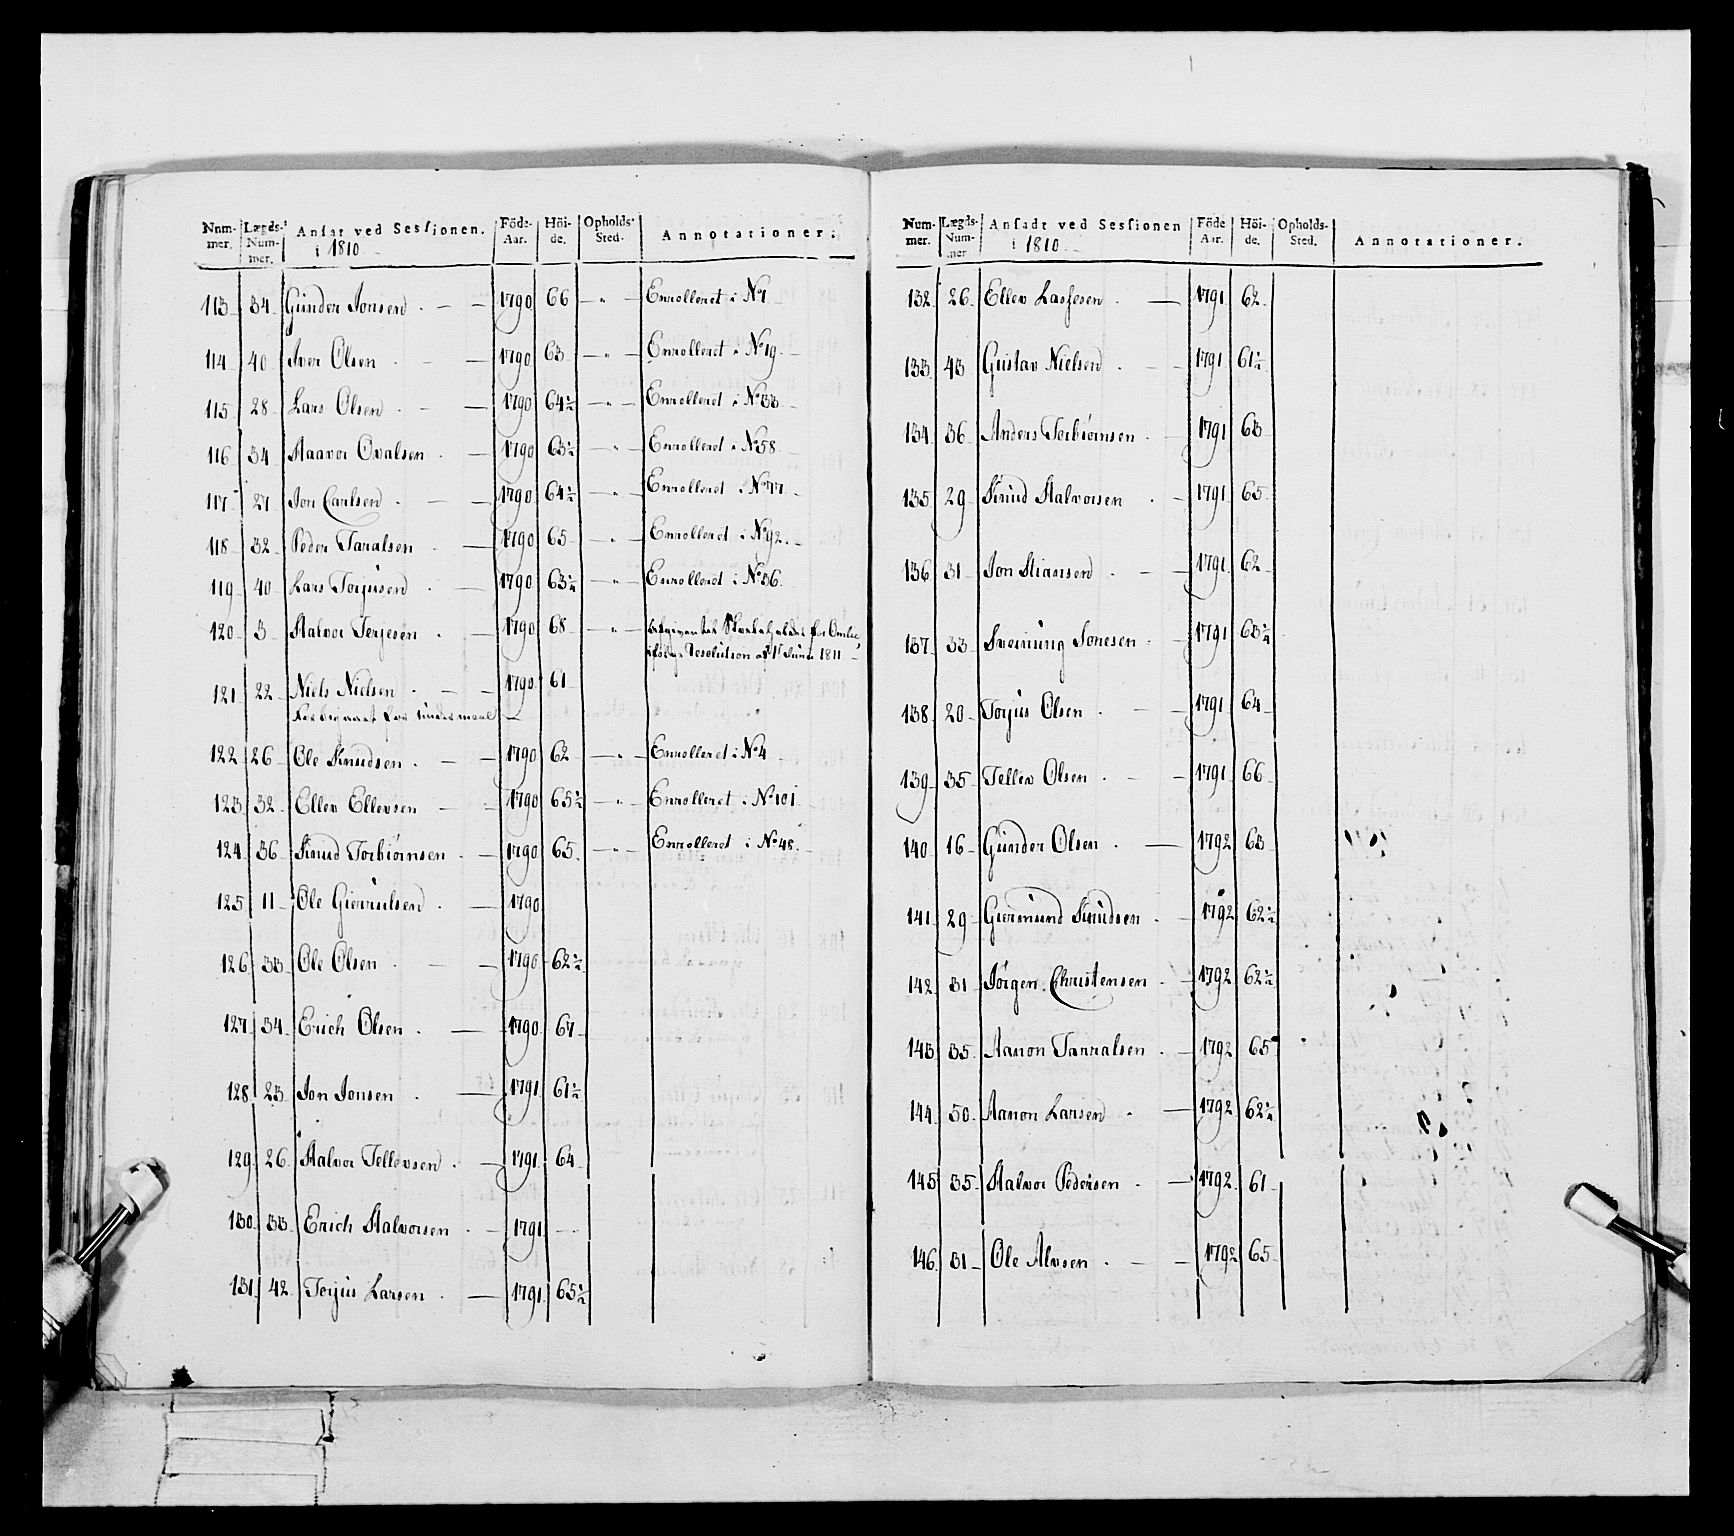 Num- Lægds- Ansat ved Sessionen. Föde- Höi- Opholds- Annotationer.
mer. Num- i 1810 Aar. de. Sted.
mer.
113 34 Gunder Jonsen 1790 66 " Enrolleret i No 1
114 40 Iver Olsen 1790 63 " Enrolleret i No 19
115 28 Lars Olsen 1790 64½ " Enrolleret i No 33
116 34 Haavor Ovalsen 1790 63½ " Enrolleret i No 58
117 27 Jon Carlsen 1790 64½ " Enrolleret i No 77
118 32 Peder Taralsen 1790 65 " Enrolleret i No 92
119 40 Lars Torjusen 1790 63½ " Enrolleret i No 56
120 3 Halvor Terjesen 1790 68 "
Resolution af 1 Juni 1811
121 22 Niels Nielsen 1790 61
Forbigaaet for undermaal
122 26 Ole Knudsen 1790 62 " Enrolleret i No 4
123 32 Ellev Ellevsen 1790 65½ " Enrolleret i No 101
124 36 Knud Torbiørnsen 1790 65 " Enrolleret i No 48
125 11 Ole Giervulsen 1790
126 33 Ole Olsen 1790 62½
127 34 Erich Olsen 1790 67
128 23 Jon Jonsen 1791 61½
129 26 Halvor Tellevsen 1791 64
130 33 Erich Halvorsen 1791 —
131 42 Terjus Larsen 1791 65½
Num- Lægds- Ansadt ved Sessionen Föde Höi- Opholds- Annotationer.
mer. Num- i 1810 Aar. de. Sted.
mer
132 26 Ellev Lassesen 1791 62
133 43 Gustav Nielsen 1791 61½
134 36 Anders Torbiørnsen 1791 63
135 29 Knud Halvorsen 1791 65
136 31 Jon Stiansen 1791 62
137 33 Sveinung Jonesen 1791 63½
138 20 Torjus Olsen 1791 64
139 35 Tellev Olsen 1791 66
140 16 Gunder Olsen 1792 63
141 29 Giermund Knudsen 1792 62½
142 31 Jörgen Christensen 1792 62½
143 35 Aanon Tarralsen 1792 65
144 50 Aanon Larsen 1792 62½
145 35 Halvor Pedersen 1792 61
146 31 Ole Alvsen 1792 65